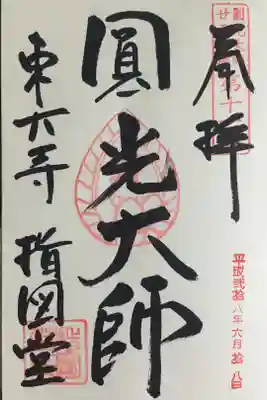 奉拝
平成弐拾八年六月拾八日
圓光大師
東大寺 指図堂